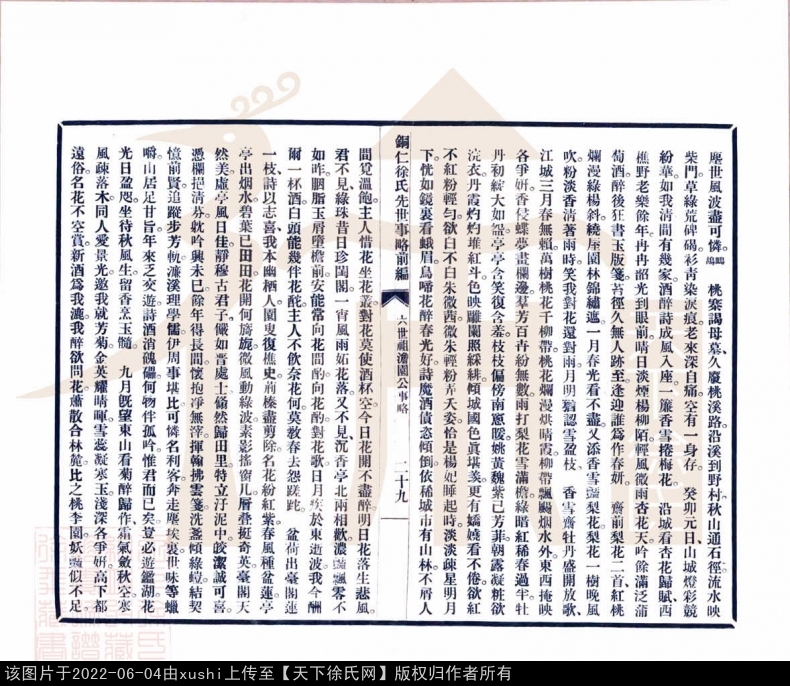 塵世風波盡可憐。 桃寨謁母墓久廢桃溪路沿溪到野村秋山通石徑流水映
柴門草綠荒碑碣衫青染淚痕老來深自痛空有一身存。 癸卯元日山城燈彩競
紛華如我清閒有幾家酒醉詩成風入座一簾香雪捲梅花。 沿城看杏花歸賦西
樵野老樂餘年冉冉韶光到眼前晴日淡煙楊柳陌輕風微雨杏花天吟餘滿泛蒲
萄酒醉後狂書玉版箋苔徑久無人跡至逢迎誰爲作春妍。 齋前梨花二首紅桃
爛漫綠楊斜繞屋園林錦繡遮一月春光看不盡又添香雪豔梨花梨花一樹晚風
吹粉淡香清著雨時笑我對花還對雨月明猶認雪盈枝。 香雪齋牡丹盛開放歌
江城三月春無賴萬樹桃花千柳帶桃花爛漫烘晴霞柳帶飄颺烟水外東西掩映
各爭妍香侵蝶夢畫欄邊羣芳百卉紛無數雨打梨花雪滿檐綠暗紅稀春過半牡
丹初綻大如盌亭亭含笑復含羞枝枝偏傍南窻暖姚黃魏紫已芳菲朝露凝粧欲
浣衣丹霞灼灼堆紅斗色映雕闌照綵緋傾城國色眞堪羨更有嬌嬈看不倦欲紅
不紅粉輕勻欲白不白朱微西微朱輕粉弄天姿恰是楊妃睡起時淡淡疎星明月
下恍如鏡裏看蛾眉鳥啼花醉春光好詩魔酒債恣傾倒依稀城市有山林不屑人
銅仁徐氏先世事略前編
六世祖澹園公事略
二十九
間覓溫飽主人惜花坐花叢對花莫使酒杯空今日花開不盡醉明日花落生悲風
君不見綠珠昔日珍閨閣一宵風雨妬花落又不見沉香亭北兩相歡濃豔飄零不
如昨胭脂玉屑墮檐前安能常向花間酌向花酌對花歌日月疾於東逝波我今酬
爾一杯酒白頭能幾伴花酡主人不飲奈花何莫敎春去怨蹉跎。 盆荷出臺閣蓮
一枝詩以志喜我本幽棲人園叟復樵史荊榛盡剪除名花紛紅紫春風種盆蓮亭
亭出烟水碧葉已田田花開何旖旎微風動綠波素影搖窗几層疊挺奇英臺閣天
然美虛亭風日佳靜穆古君子儼如晋處士翛然歸田里特立汙泥中皎潔誠可喜
憑欄挹清芬躭吟興未已餘年得長閒懷抱淨無滓揮翰拂雲箋洗盞傾綠螘結契
憶前賢追蹤步芳軌濂溪理學儒伊周事堪比可憐名利客奔走塵埃裏世味等蠟
嚼山居足甘旨年來乏交遊詩酒消磈礧何物伴孤吟惟君而已矣登必遊鑑湖花
光日盈咫坐待秋風生留香烹玉髓。 九月旣望東山看菊醉歸作霜氣斂秋空寒
風疎落木同人愛景光邀我就芳菊金英耀晴暉雪蕊凝寒玉淺深各爭妍高下都
遠俗名花不空賞新酒爲我漉我醉欲問花蕭散合林麓比之桃李園妖豔似不足
该图片于2022-06-04由xushi上传至【天下徐氏网】版权归作者所有